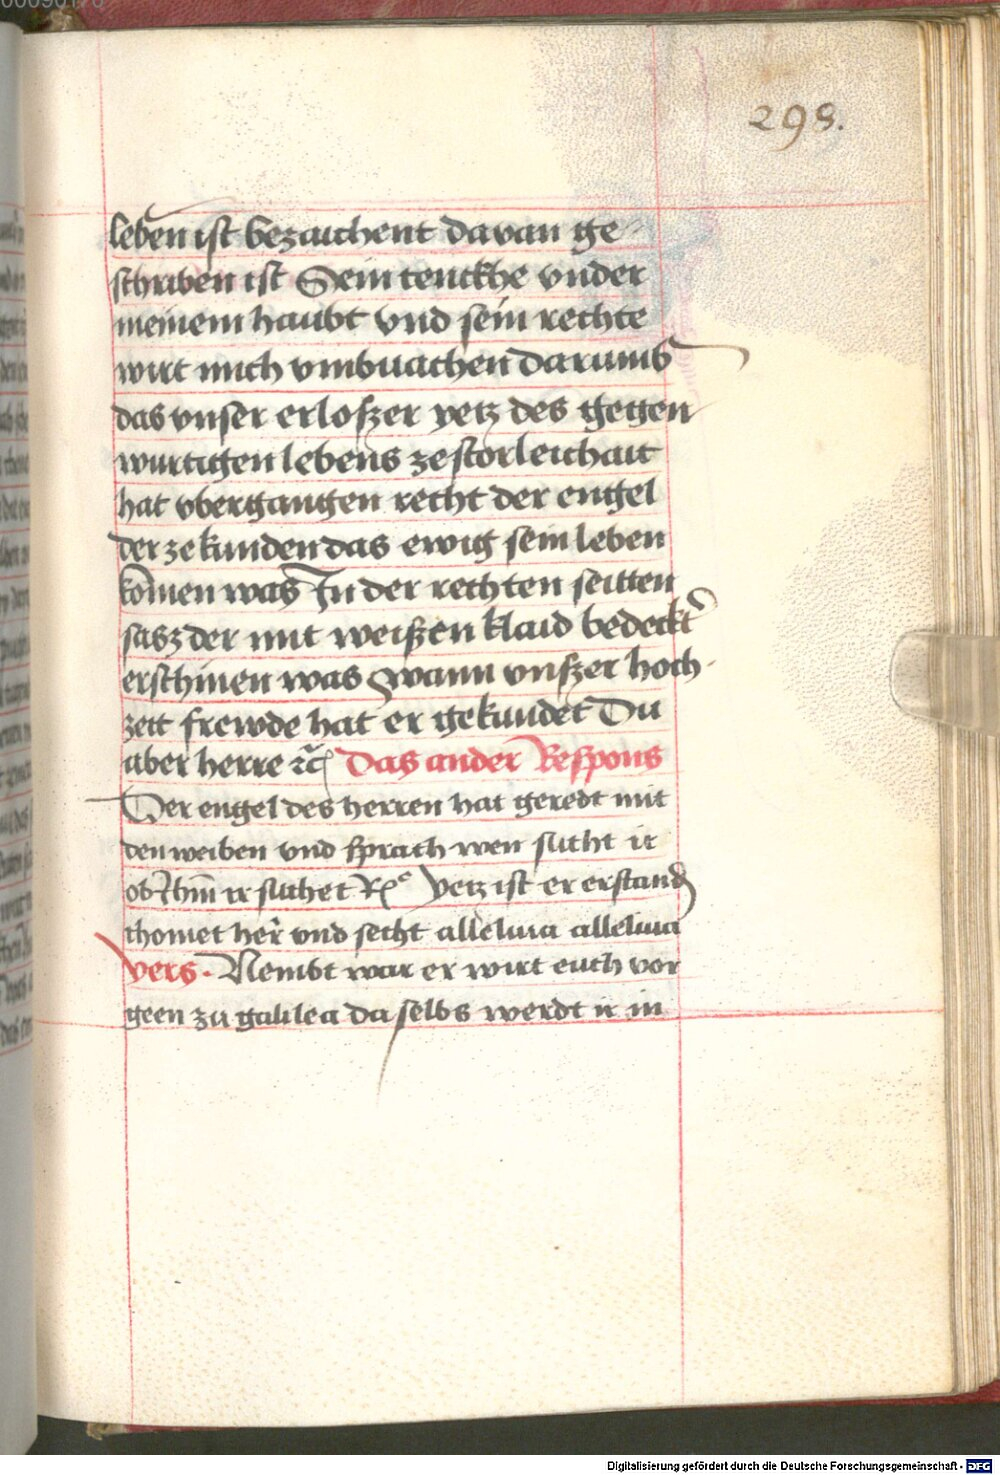 298.
leben ist bezaichent davan ge-
schriben ist Sein tenckhe vnder
meinem haubt vnd sein rechte
wirt mich vmbuachen darumb
das vnser erloszer yetz des gegen
wurtigen lebens zestorleichait
hat vbergangen recht der engel
der ze kunden das ewig sein leben
komen was In der rechten seitten
sasz der mit weiszen klaid bedeckt
erschinen was wann vnszer hoch-
zeit frewde hat er gekundet Du
aber herre rc̃ Das ander Respons
Der engel des herren hat geredt mit
den weiben vnd sprach wen sucht ir
ob Ihm̄ ir suchet Rͤ yetz ist er erstandn̄
chomet her vnd secht alleluia alleluia
vers. Nembt war er wirt euch vor
geen zu galilea da selbs werdt ir in
Digitalisierung gefördert durch die Deutsche Forschungsgemeinschaft - DFG